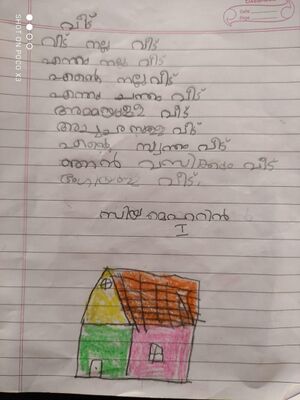 വീട്
വീട് നല്ല വീട്
എന്തു നല്ല വീട്
എന്റെ നല്ല വീട്
എന്തു ചന്തം വീട്
അമ്മയുള്ള വീട്
അച്ഛനുള്ള വീട്
എന്റെ സ്വന്തം വീട്
ഞാൻ വസിക്കും വീട്
വീട്.
സിയ മെഹറിൻ
I
SHOT ON POCO X3
Date
Page